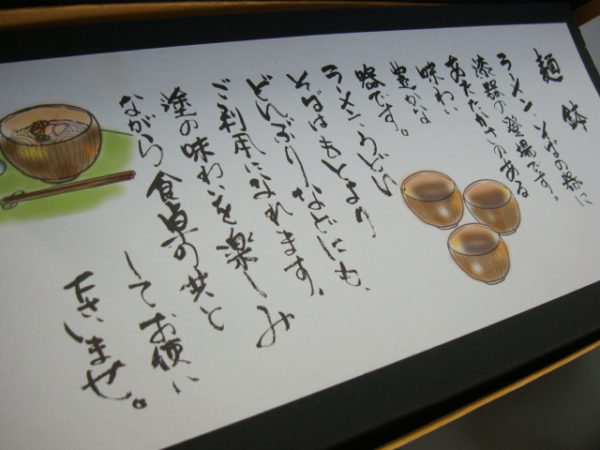 麺鉢
ラーメン、そばの器に
漆器の登場です。
あたたかさのある
味わい
豊かな
器です。
ラーメン、うどん
そばはもとより
どんぶりなどにも、
ご利用になれます。
塗の味わいを楽しみ
ながら食卓の共と
してお使い
下さいませ。